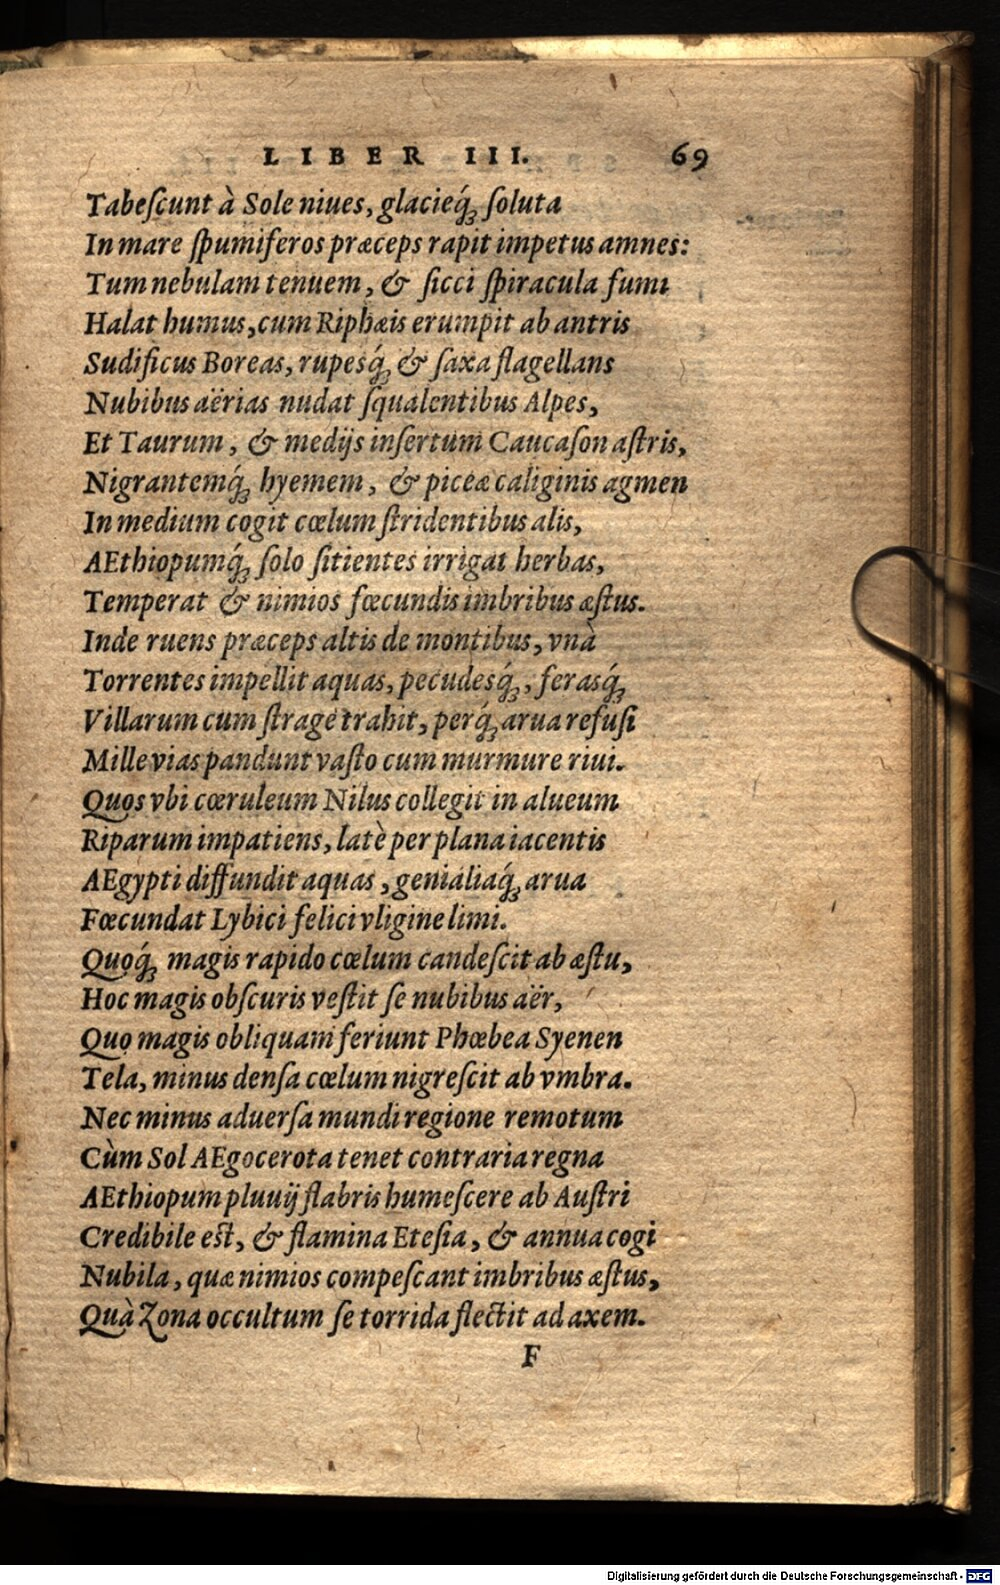 LIBER III. 69
Tabeſcunt à Sole niues, glacieq́ꝫ ſoluta
In mare ſpumiferos præceps rapit impetus amnes:
Tum nebulam tenuem, & ſicci ſpiracula fumi
Halat humus, cum Riphæis erumpit ab antris
Sudificus Boreas, rupesq́ꝫ & ſaxa flagellans
Nubibus aërias nudat ſqualentibus Alpes,
Et Taurum, & medijs inſertum Caucaſon aſtris,
Nigrantemq́ꝫ hyemem, & piceæ caliginis agmen
In medium cogit cœlum ſtridentibus alis,
AEthiopumq́ꝫ ſolo ſitientes irrigat herbas,
Temperat & nimios fœcundis imbribus æſtus.
Inde ruens præceps altis de montibus, vnà
Torrentes impellit aquas, pecudesq́ꝫ, ferasq́ꝫ
Villarum cum ſtrage trahit, perq́ꝫ arua refuſi
Mille vias pandunt vaſto cum murmure riui.
Quos vbi cœruleum Nilus collegit in alueum
Riparum impatiens, latè per plana iacentis
AEgypti diffundit aquas, genialiaq́ꝫ arua
Fœcundat Lybici felici vligine limi.
Quoq́ꝫ magis rapido cœlum candeſcit ab æſtu,
Hoc magis obſcuris veſtit ſe nubibus aër,
Quo magis obliquam feriunt Phœbea Syenen
Tela, minus denſa cœlum nigreſcit ab vmbra.
Nec minus aduerſa mundi regione remotum
Cùm Sol AEgocerota tenet contraria regna
AEthiopum pluuij flabris humeſcere ab Auſtri
Credibile eſt, & flamina Eteſia, & annua cogi
Nubila, quæ nimios compeſcant imbribus æſtus,
Quà Zona occultum ſe torrida flectit ad axem.
F
Digitalisierung gefördert durch die Deutsche Forschungsgemeinschaft - DFG